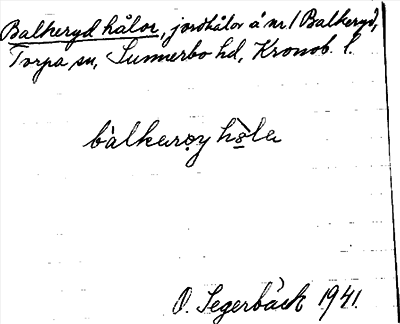 Balkeryd hålor, jordhålor å nr 1 Balkeryd,
Torpa sn, Sunnerbo hd, Kronob. l.
bàlkarọy hò̱la
O. Segerbäck 1941.